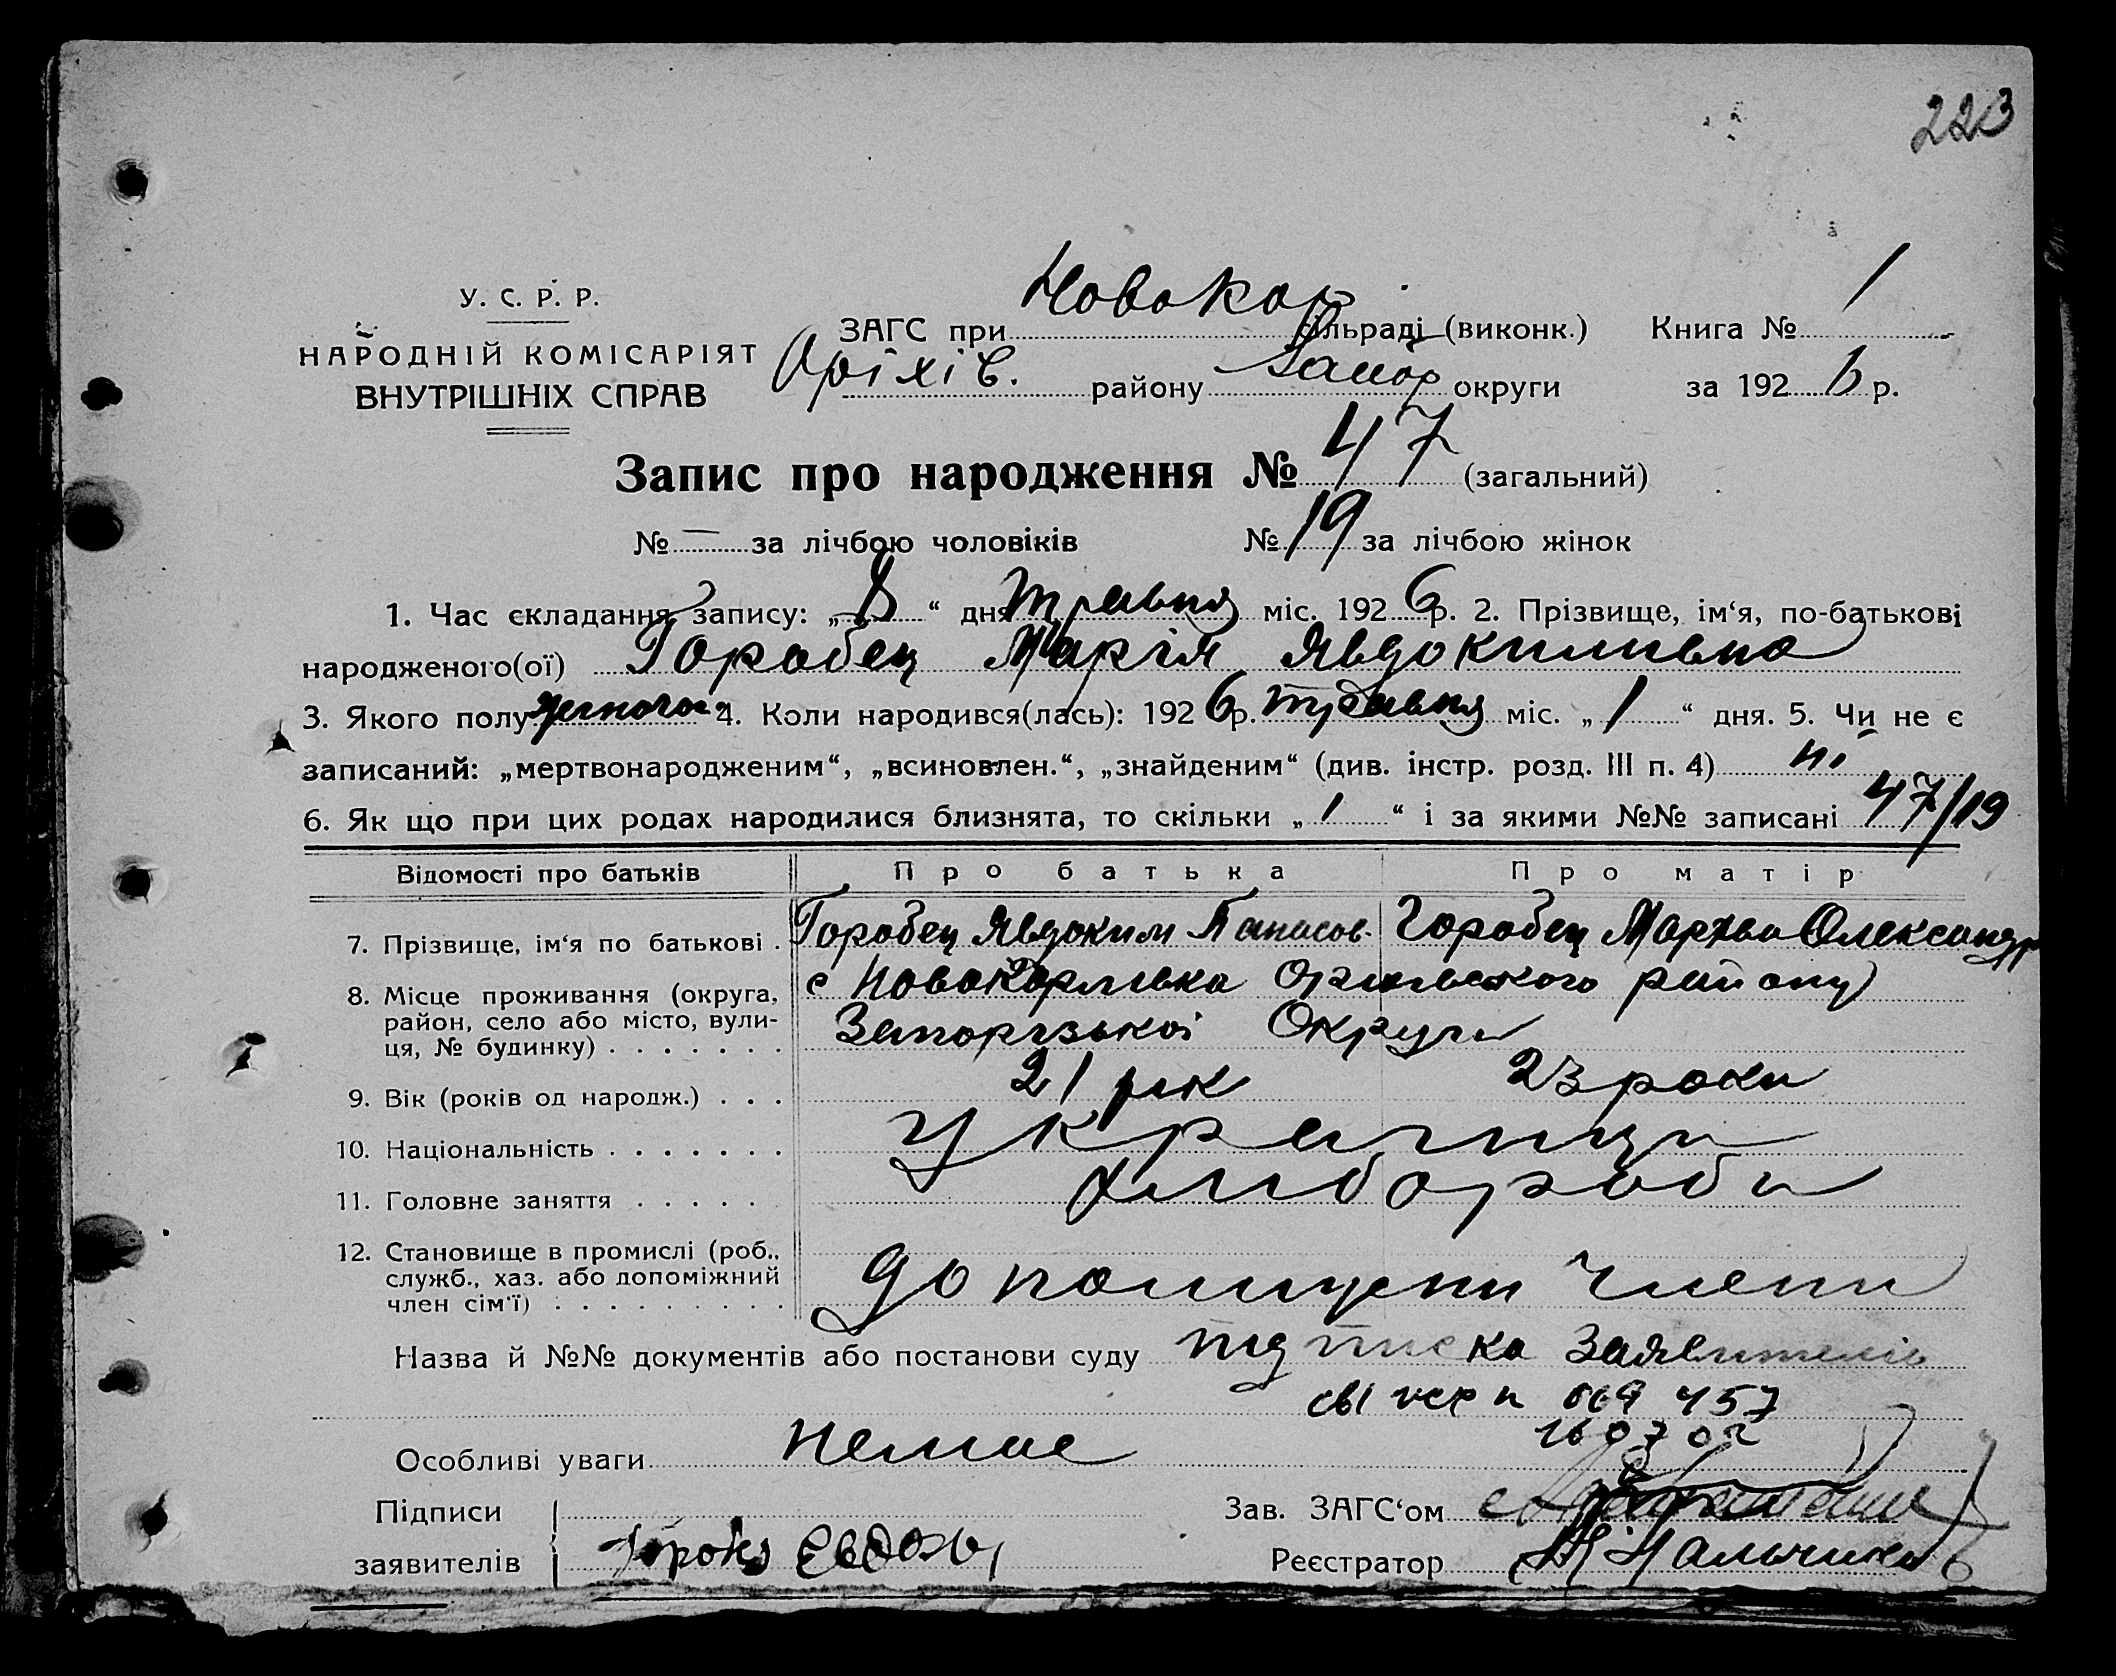 223
У. С. Р. Р.
НАРОДНІЙ КОМІСАРІЯТ
ВНУТРІШНІХ СПРАВ
ЗАГС при Новокар. сільраді (виконк.) Книга № 1
Оріхів. району Запор округи за 1926 р.
Запис про народження № 47 (загальний)
№ — за лічбою чоловіків № 19 за лічбою жінок
1. Час складання запису: „8“ дня травня міс. 1926 р. 2. Прізвище, ім‘я, по-батькові
народженого(ої) Горобец Марія Явдокимивна
3. Якого полу жиночого 4. Коли народився(лась): 1926 р. травня міс. „1“ дня. 5. Чи не є
записаний: „мертвонародженим“, „всиновлен.“, „знайденим“ (див. інстр. розд. III п. 4) ні
6. Як що при цих родах народилися близнята, то скільки „1“ і за якими №№ записані 47/19
Відомості про батьків Про батька Про матір
7. Прізвище, ім‘я по батькові . Горобец Явдоким Панасов. Горобец Мархва Олександр
8. Місце проживання (округа, район, село або місто, вули-ця, № будинку) с Новокарливка Оріхивського району
Запорізької Округи
9. Вік (років од народж.) . . . 21 рик 23 роки
10. Національність . . . . . . . Украинци
11. Головне заняття . . . . . Хлибороби
12. Становище в промислі (роб., служб., хаз. або допоміжний член сім‘ї) допомижни члени
Назва й №№ документів або постанови суду підписка заявителів
069 457
Особливі уваги Немае
Підписи
заявителів
Зав. ЗАГС‘ом
Реєстратор Мальчик